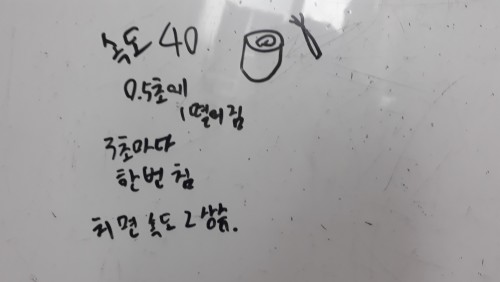 속도 40
0.5초에
1 떨어짐
3초마다
한번 침
치면 속도 2 상승.